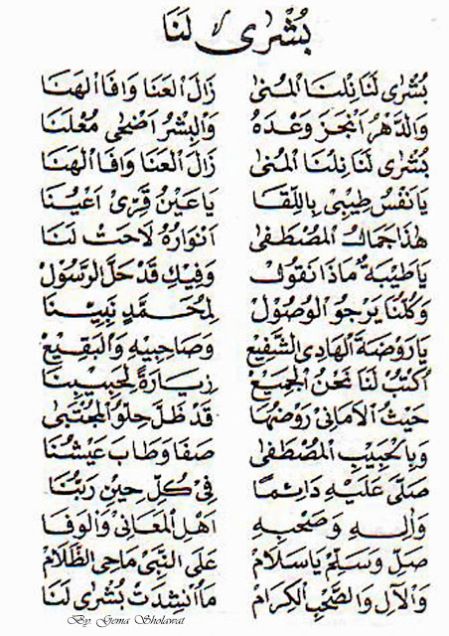 بُشْرٰى لَنَا
بُشْرٰى لَنَا نِلْنَا الْمُنٰى زَالَ الْعَنَا وَافَا الْهَنَا
وَالدَّهْرُ اَنْجَزَ وَعْدَهُ وَالْبِشْرُ اَضْحٰى مُعْلَنَا
بُشْرٰى لَنَا نِلْنَا الْمُنٰى زَالَ الْعَنَا وَافَا الْهَنَا
يَا نَفْسُ طِيْبِيْ بِاللِّقَا يَا عَيْنُ قَرِّيْ اَعْيُنَا
هٰذَا جَمَالُ الْمُصْطَفٰى اَنْوَارُهُ لَاحَتْ لَنَا
يَا طَيْبَةُ مَاذَا نَقُوْلْ وَفِيْكِ قَدْ حَلَّ الرَّسُوْلْ
وَكُلُّنَا يَرْجُو الْوُصُوْلْ لِمُحَمَّدٍ نَبِيِّنَا
يَا رَوْضَةَ الْهَادِى الشَّفِيْعْ وَصَاحِبَيْهِ وَالْبَقِيْعْ
اُكْتُبْ لَنَا نَحْنُ الْجَمِيْعْ زِيَارَةً لِحَبِيْبِنَا
حَيْثُ الْاَمَانِيْ رَوْضُهَا قَدْ ظَلَّ حِلْوُ الْمُجْتَبٰى
وَبِالْحَبِيْبِ الْمُصْطَفٰى صَفَا وَطَابَ عَيْشُنَا
صَلَّى عَلَيْهِ دَائِمًا فِيْ كُلِّ حِيْنٍ رَبُّنَا
وَاٰلِهِ وَصَحْبِهِ اَهْلِ الْمَعَانِيْ وَالْوَفَا
صَلِّ وَسَلِّمْ يَا سَلَامْ عَلَى النَّبِيْ مَاحِى الظَّلَامْ
وَالْاٰلِ وَالصَّحْبِ الْكِرَامْ مَا اُنْشِدَتْ بُشْرٰى لَنَا
By. Gema Sholawat